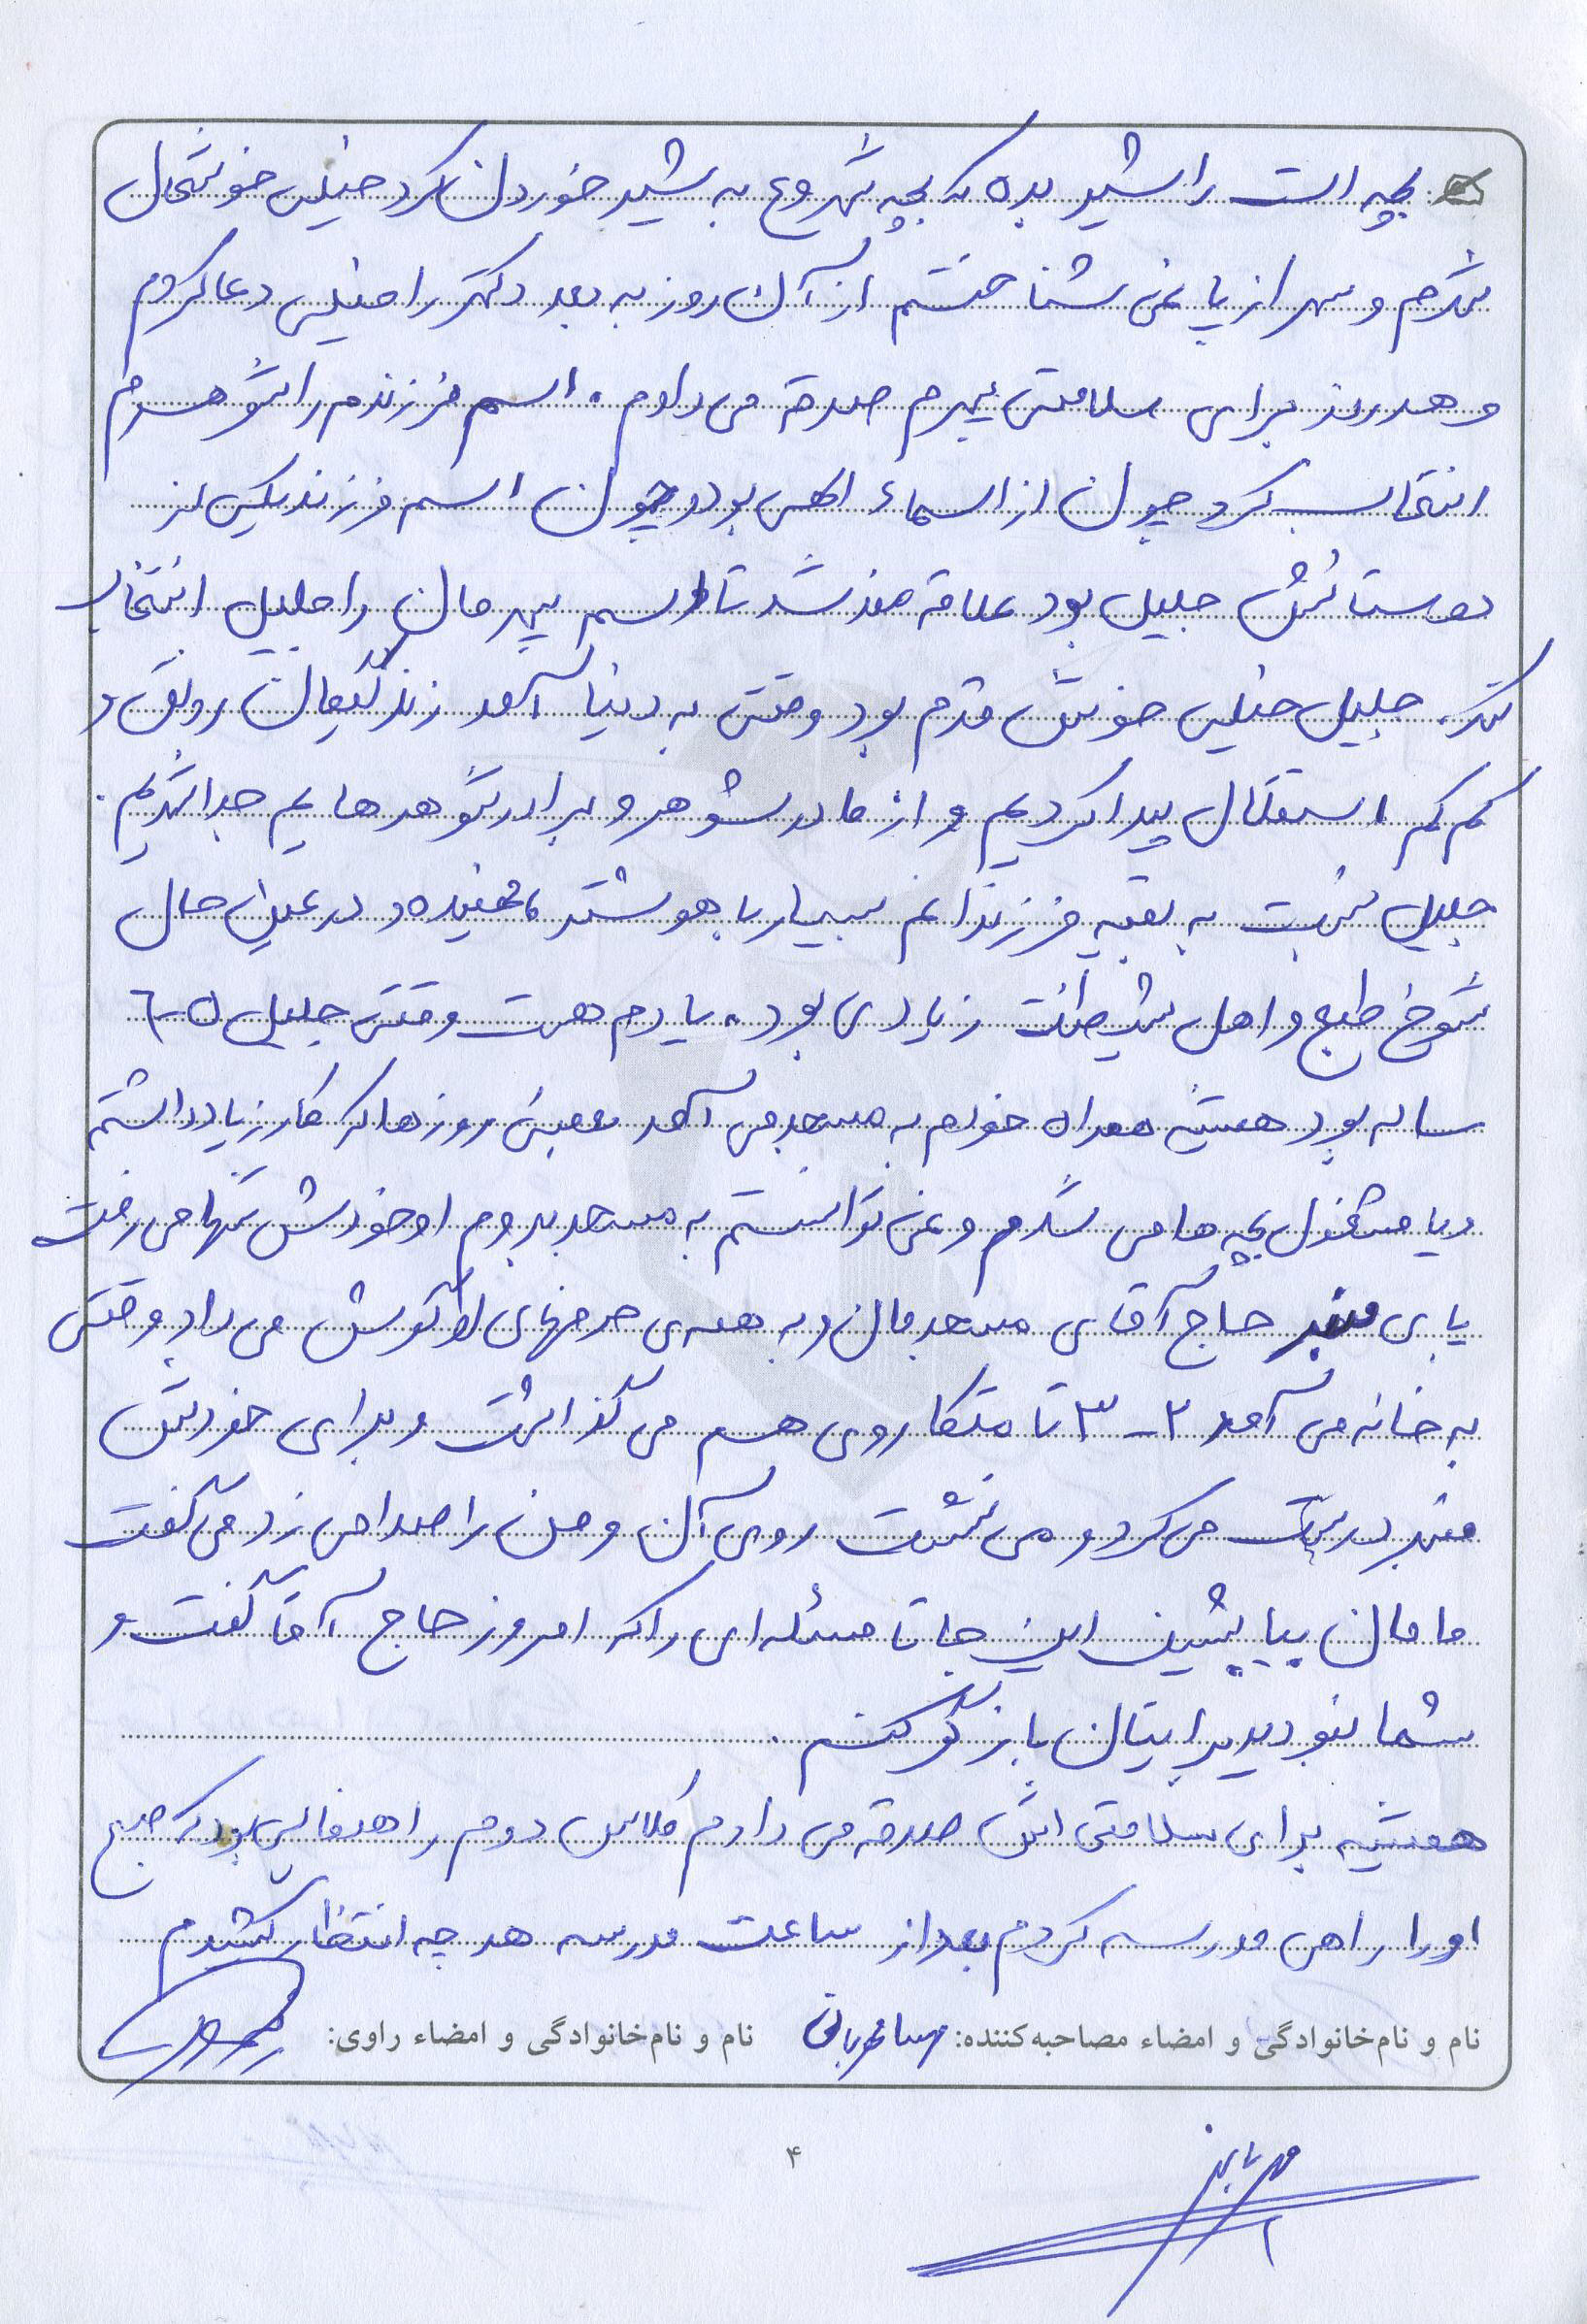 بچه ات را شیر بده که بچه شروع به شیر خوردن کرد خیلی خوشحال
شدم و سر از پا نمی شناختم از آن روز به بعد دکتر را خیلی دعا کردم
و هر روز برای سلامتی پسرم صدقه می دادم . اسم فرزندم را شوهرم
انتخاب کرد چون از اسماء الهی بود و چون اسم فرزند یکی از
دوستانش جلیل بود علاقه مند شد تا اسم پسرمان را جلیل انتخاب
کند. جلیل خیلی خوش قدم بود وقتی به دنیا آمد زندگیمان رونق و
کم کم استقلال پیدا کردیم و از مادر شوهر و برادر شوهرهایم جدا شدیم.
جلیل نسبت به بقیه فرزندانم بسیار با هوشتر، فهمیده و در عین حال
شوخ طبع و اهل شیطنت زیادی بود . یادم هست وقتی جلیل ۵-۶
ساله بود همیشه همراه خودم به مسجد می آمد بعضی روزها که کار زیاد داشتم
و یا مشغول بچه ها می شدم و نمی توانستم به مسجد بروم او خودش تنها می رفت
پای منبر حاج آقای مسجدمان و به همه ی حرفهای او گوش می داد و وقتی
به خانه می آمد ۲-۳ تا متکا روی هم می گذاشت و برای خودش
منبر درست می کرد و می نشست روی آن و من را صدا می زد می گفت
مامان بیا بشین این جا تا مسئله ای را که امروز حاج آقا گفت و
شما نبودید برایتان بازگو کنم .
همیشه برای سلامتی اش صدقه می دادم کلاس دوم راهنمایی بود که صبح
او را راهی مدرسه کردم بعد از ساعت مدرسه هر چه انتظار کشیدم
نام و نام‌خانوادگی و امضاء مصاحبه‌کننده: نام و نام‌خانوادگی و امضاء راوی:
۴